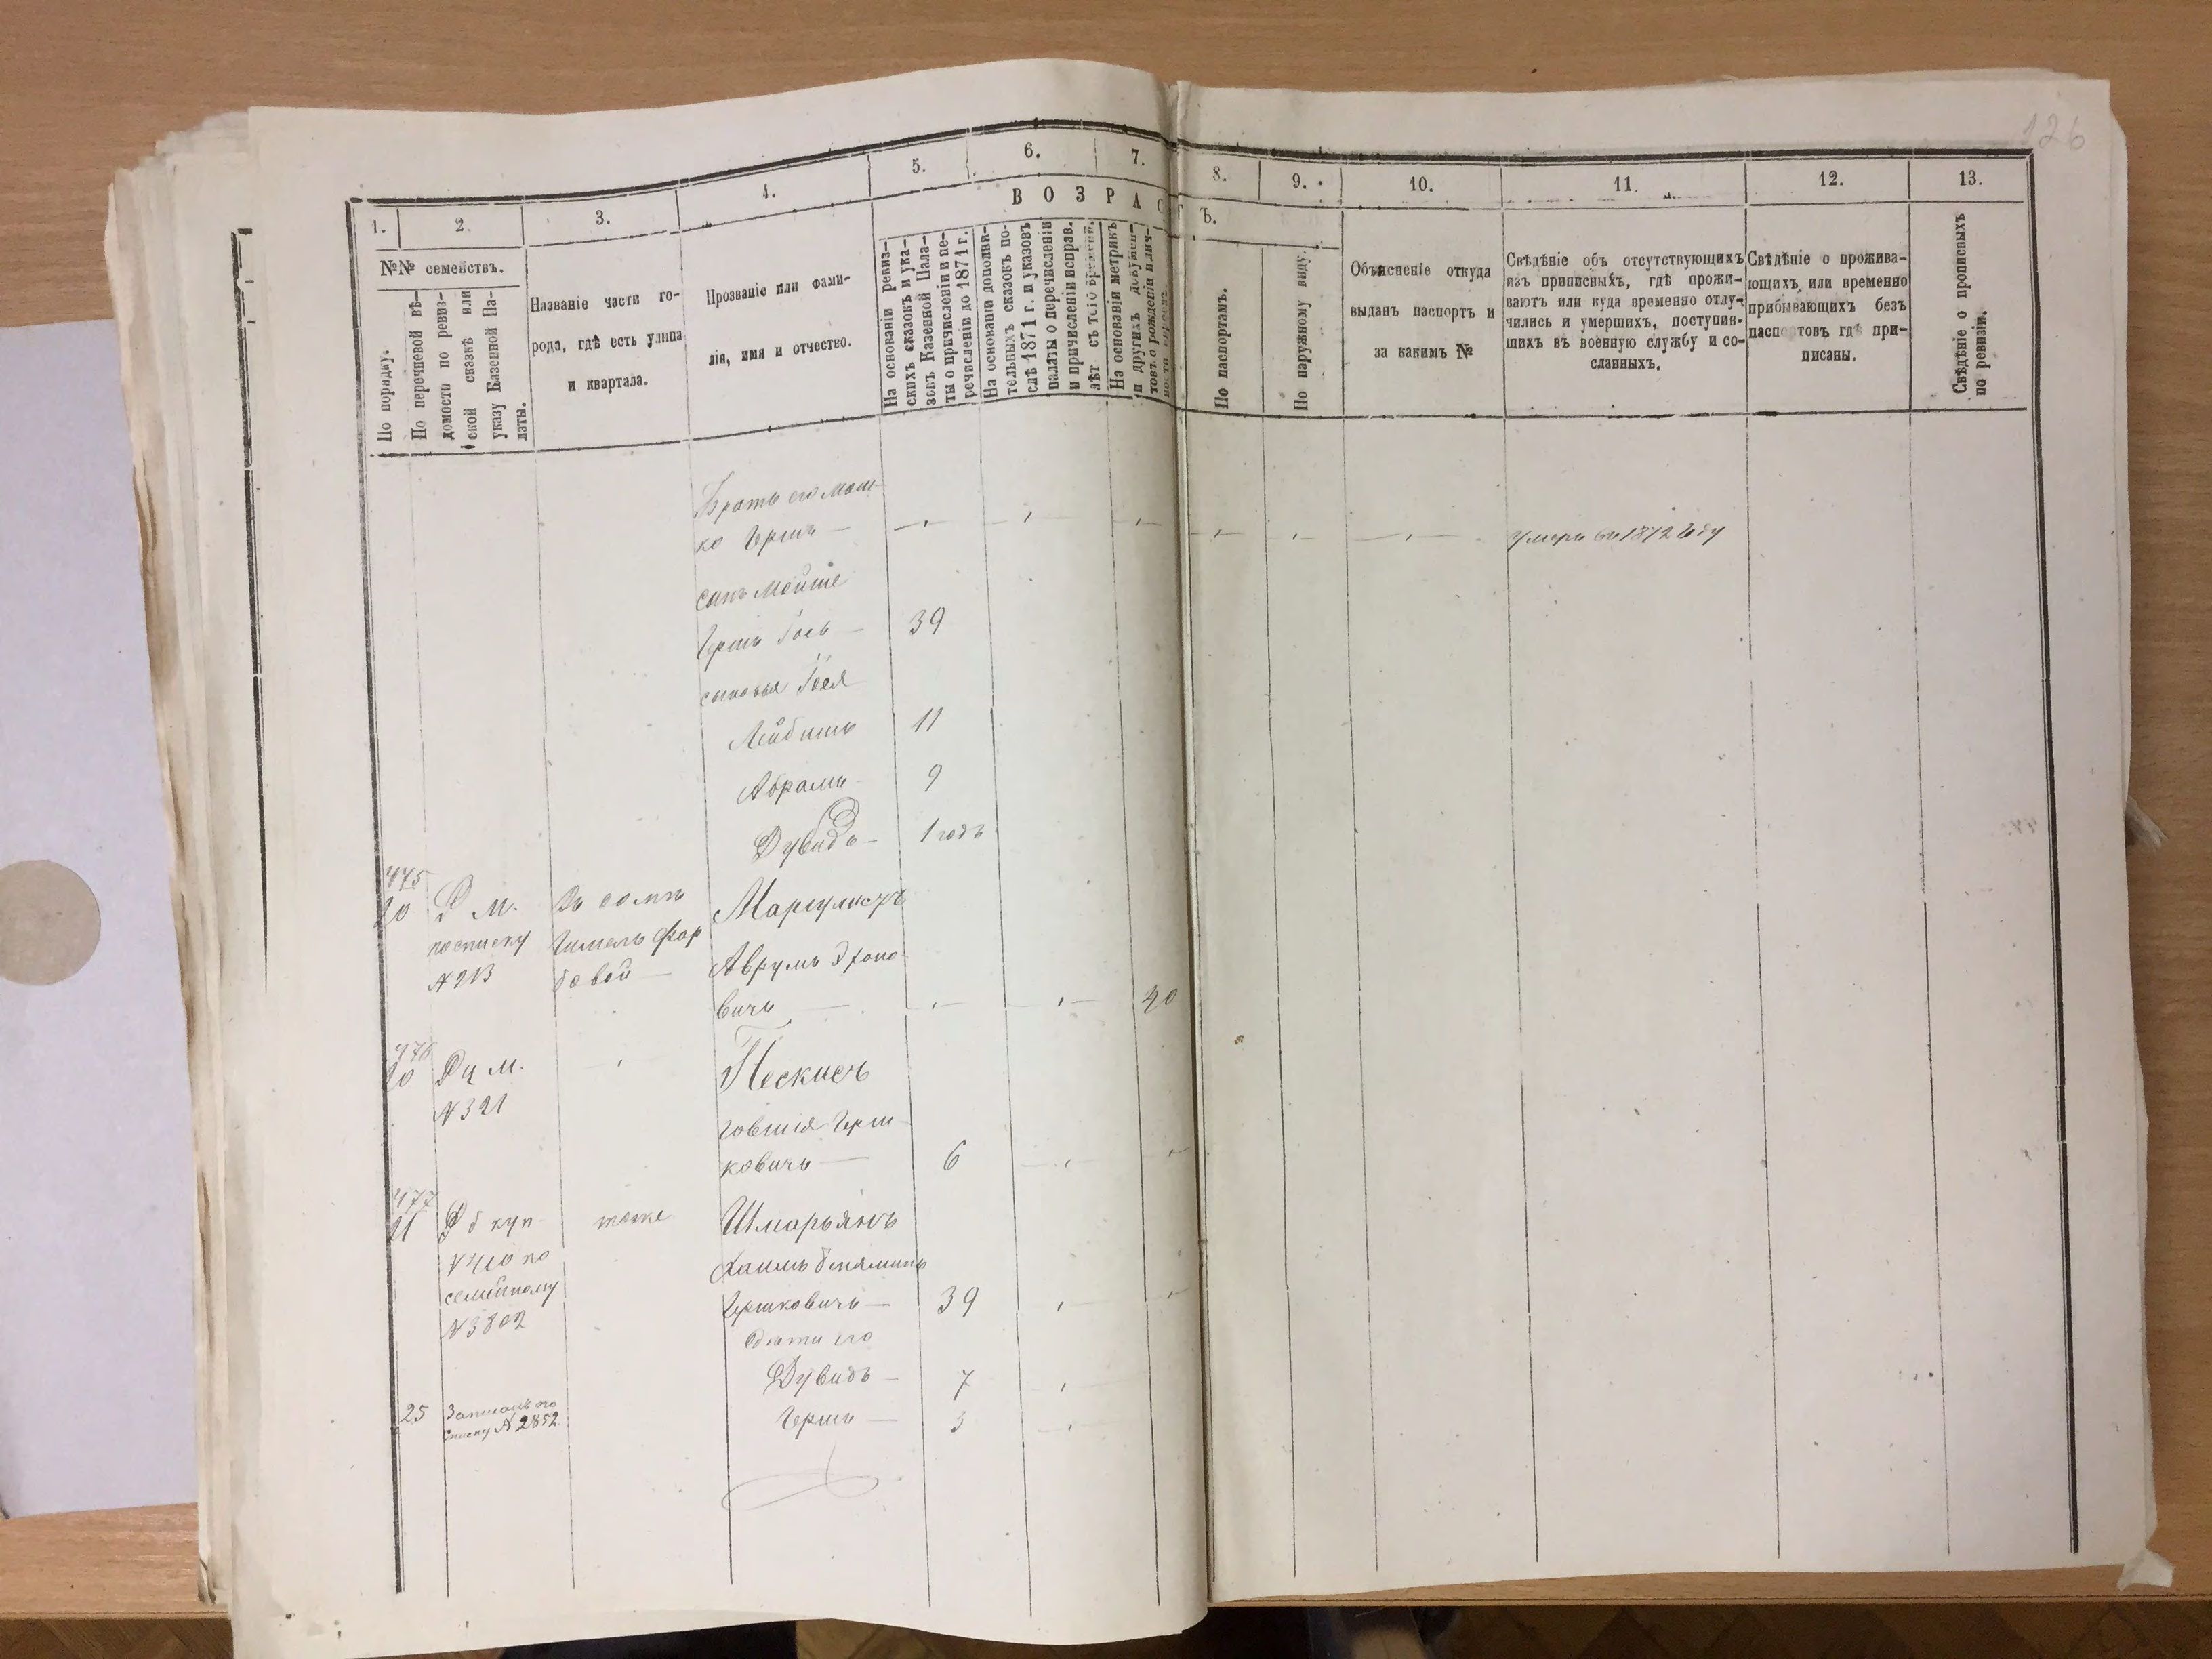 126
1.
2.
3.
4.
5.
6.
7.
8.
9.
10.
11.
12.
13.
ВОЗРАСТЪ.
№№ семействъ.
По порядку.
По перечневой вѣ-
домости по ревиз-
ской сказкѣ или
указу Казенной Па-
латы.
Названіе части го-
рода, гдѣ есть улица
и квартала.
Прозваніе или фами-
лія, имя и отчество.
На основаніи ревиз-
скихъ сказокъ и ука-
зовъ Казенной Пала-
ты о причисленіи и пе-
речисленіи до 1871 г.
На основаніи дополни-
тельныхъ сказокъ по-
слѣ 1871 г. и указовъ
палаты о перечисленіи
и причисленіи исправ.
лѣт съ того времени.
На основаніи метрикъ
и другихъ докумен-
товъ о рожденіи и лич-
По паспортамъ.
По наружному виду.
Объясненіе откуда
выданъ паспортъ и
за какимъ №
Свѣдѣніе объ отсутствующихъ
изъ приписныхъ, гдѣ прожи-
ваютъ или куда временно отлу-
чились и умершихъ, поступив-
шихъ въ военную службу и со-
сланныхъ.
Свѣдѣніе о прожива-
ющихъ или временно
прибывающихъ безъ
паспортовъ гдѣ при-
писаны.
Свѣдѣніе о прописныхъ
по ревизіи.
Братъ его Мош-
ко Гершъ —
умеръ въ 1872 году
сынъ Мойше
Гершъ Іось — 39
сыновья Іося
Лейбишъ 11
Абрамъ 9
Дувидъ — 1 годъ
475
20 Д м. Въ домѣ Маргулисъ
по списку Гимель Фар
N 213 бовой — Аврумъ
вичъ — 40
476
20 Дц м. Пескисъ
N 321
Говшія Герш-
ковичъ — 6
477
21 Дб куп тоже Шмарьянъ
по Хаимъ Беньяминъ
семейному Гершковичъ — 39
N 3802 дѣти его
Дувидъ — 7
25 Записанъ по Гершъ — 3
списку N 2852.